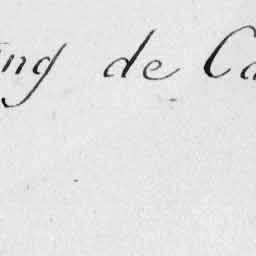 ing de Ca